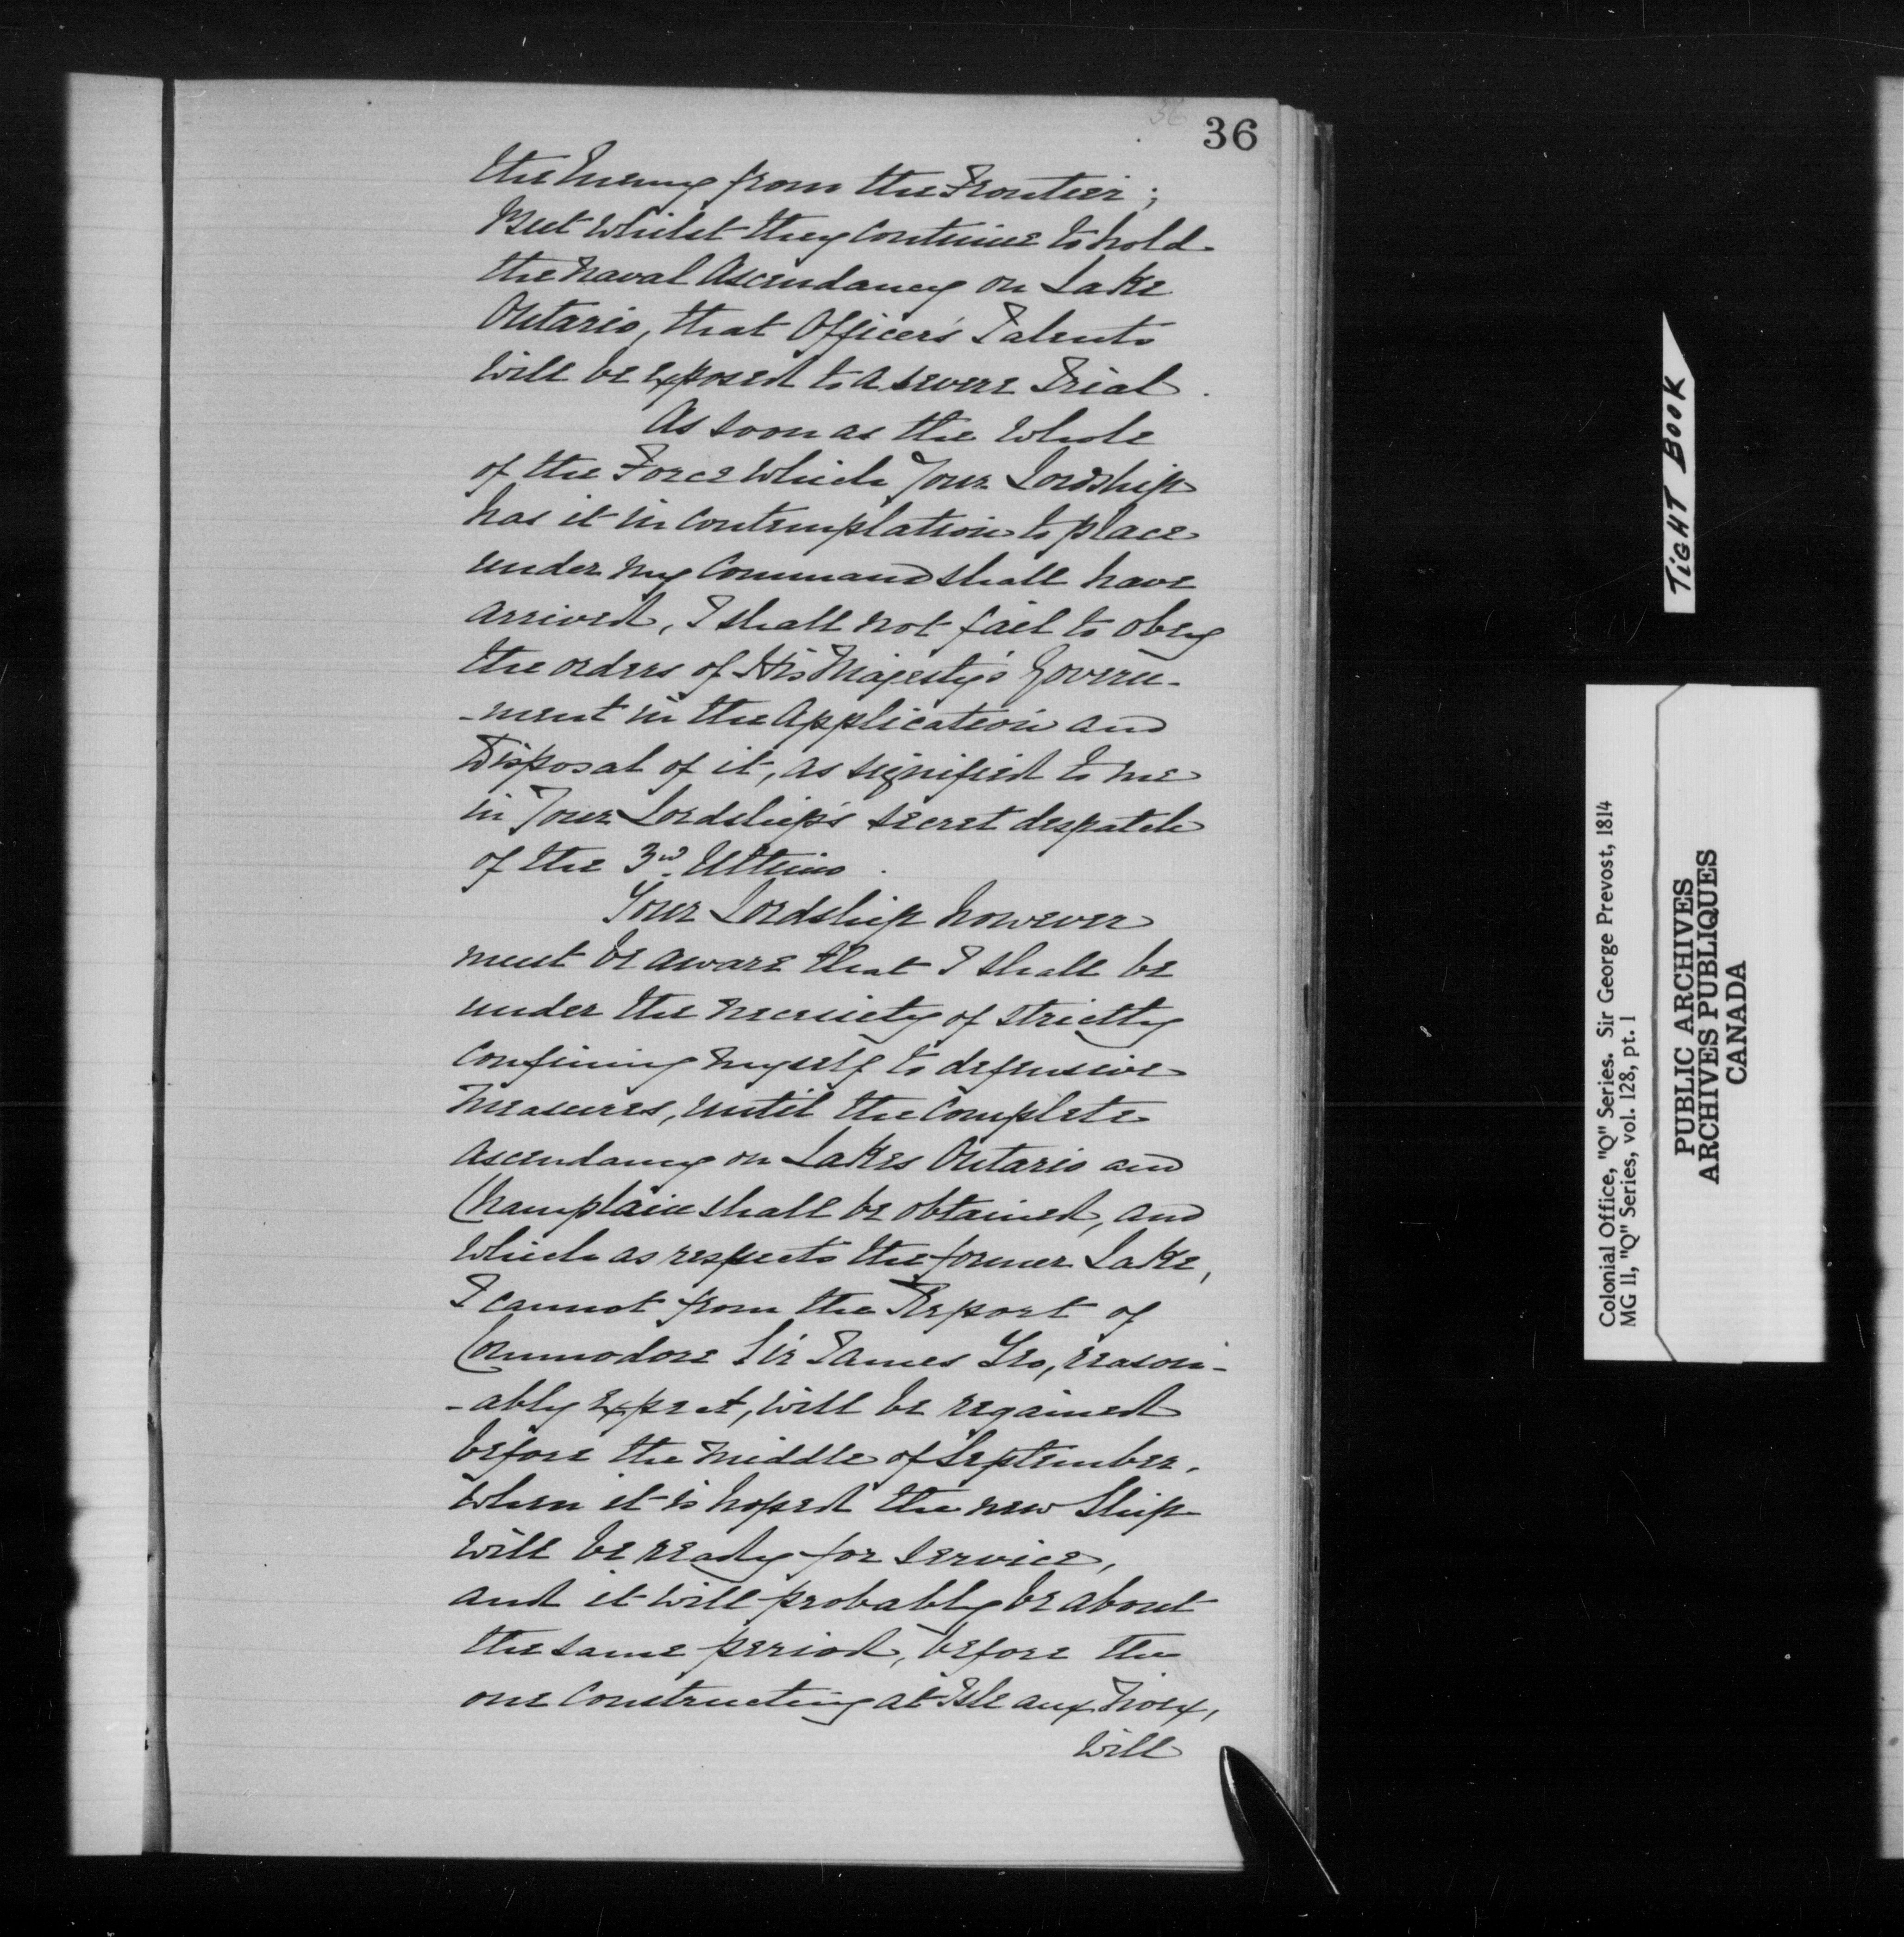 36
36
the Enemy from the Frontier;
But whilst they continue to hold
the Naval Ascendancy on Lake
Ontario, that Officer's Talents
will be exposed to a severe Trial.
As soon as the whole
of the Force which Your Lordship
has it in contemplation to place
under my Command shall have
arrived, I shall not fail to obey
the orders of His Majesty's Govern-
-ment in the Application and
Disposal of it, as signified to me
in Your Lordship's secret despatch
of the 3rd. Ultimo.
Your Lordship however
must be aware that I shall be
under the necessity of strictly
confining myself to defensive
Measures, until the complete
ascendancy on Lakes Ontario and
Champlain shall be obtained, and
which as respects the former Lake,
I cannot from the Report of
Commodore Sir James Yeo, reason-
-ably expect, will be regained
before the middle of September,
when it is hoped the new Ship
will be ready for service,
and it will probably be about
the same period, before the
one constructing at Isle aux Noix,
will
TIGHT BOOK
Colonial Office, "Q" Series. Sir George Prevost, 1814
MG 11, "Q" Series, vol. 128, pt. 1
PUBLIC ARCHIVES
ARCHIVES PUBLIQUES
CANADA